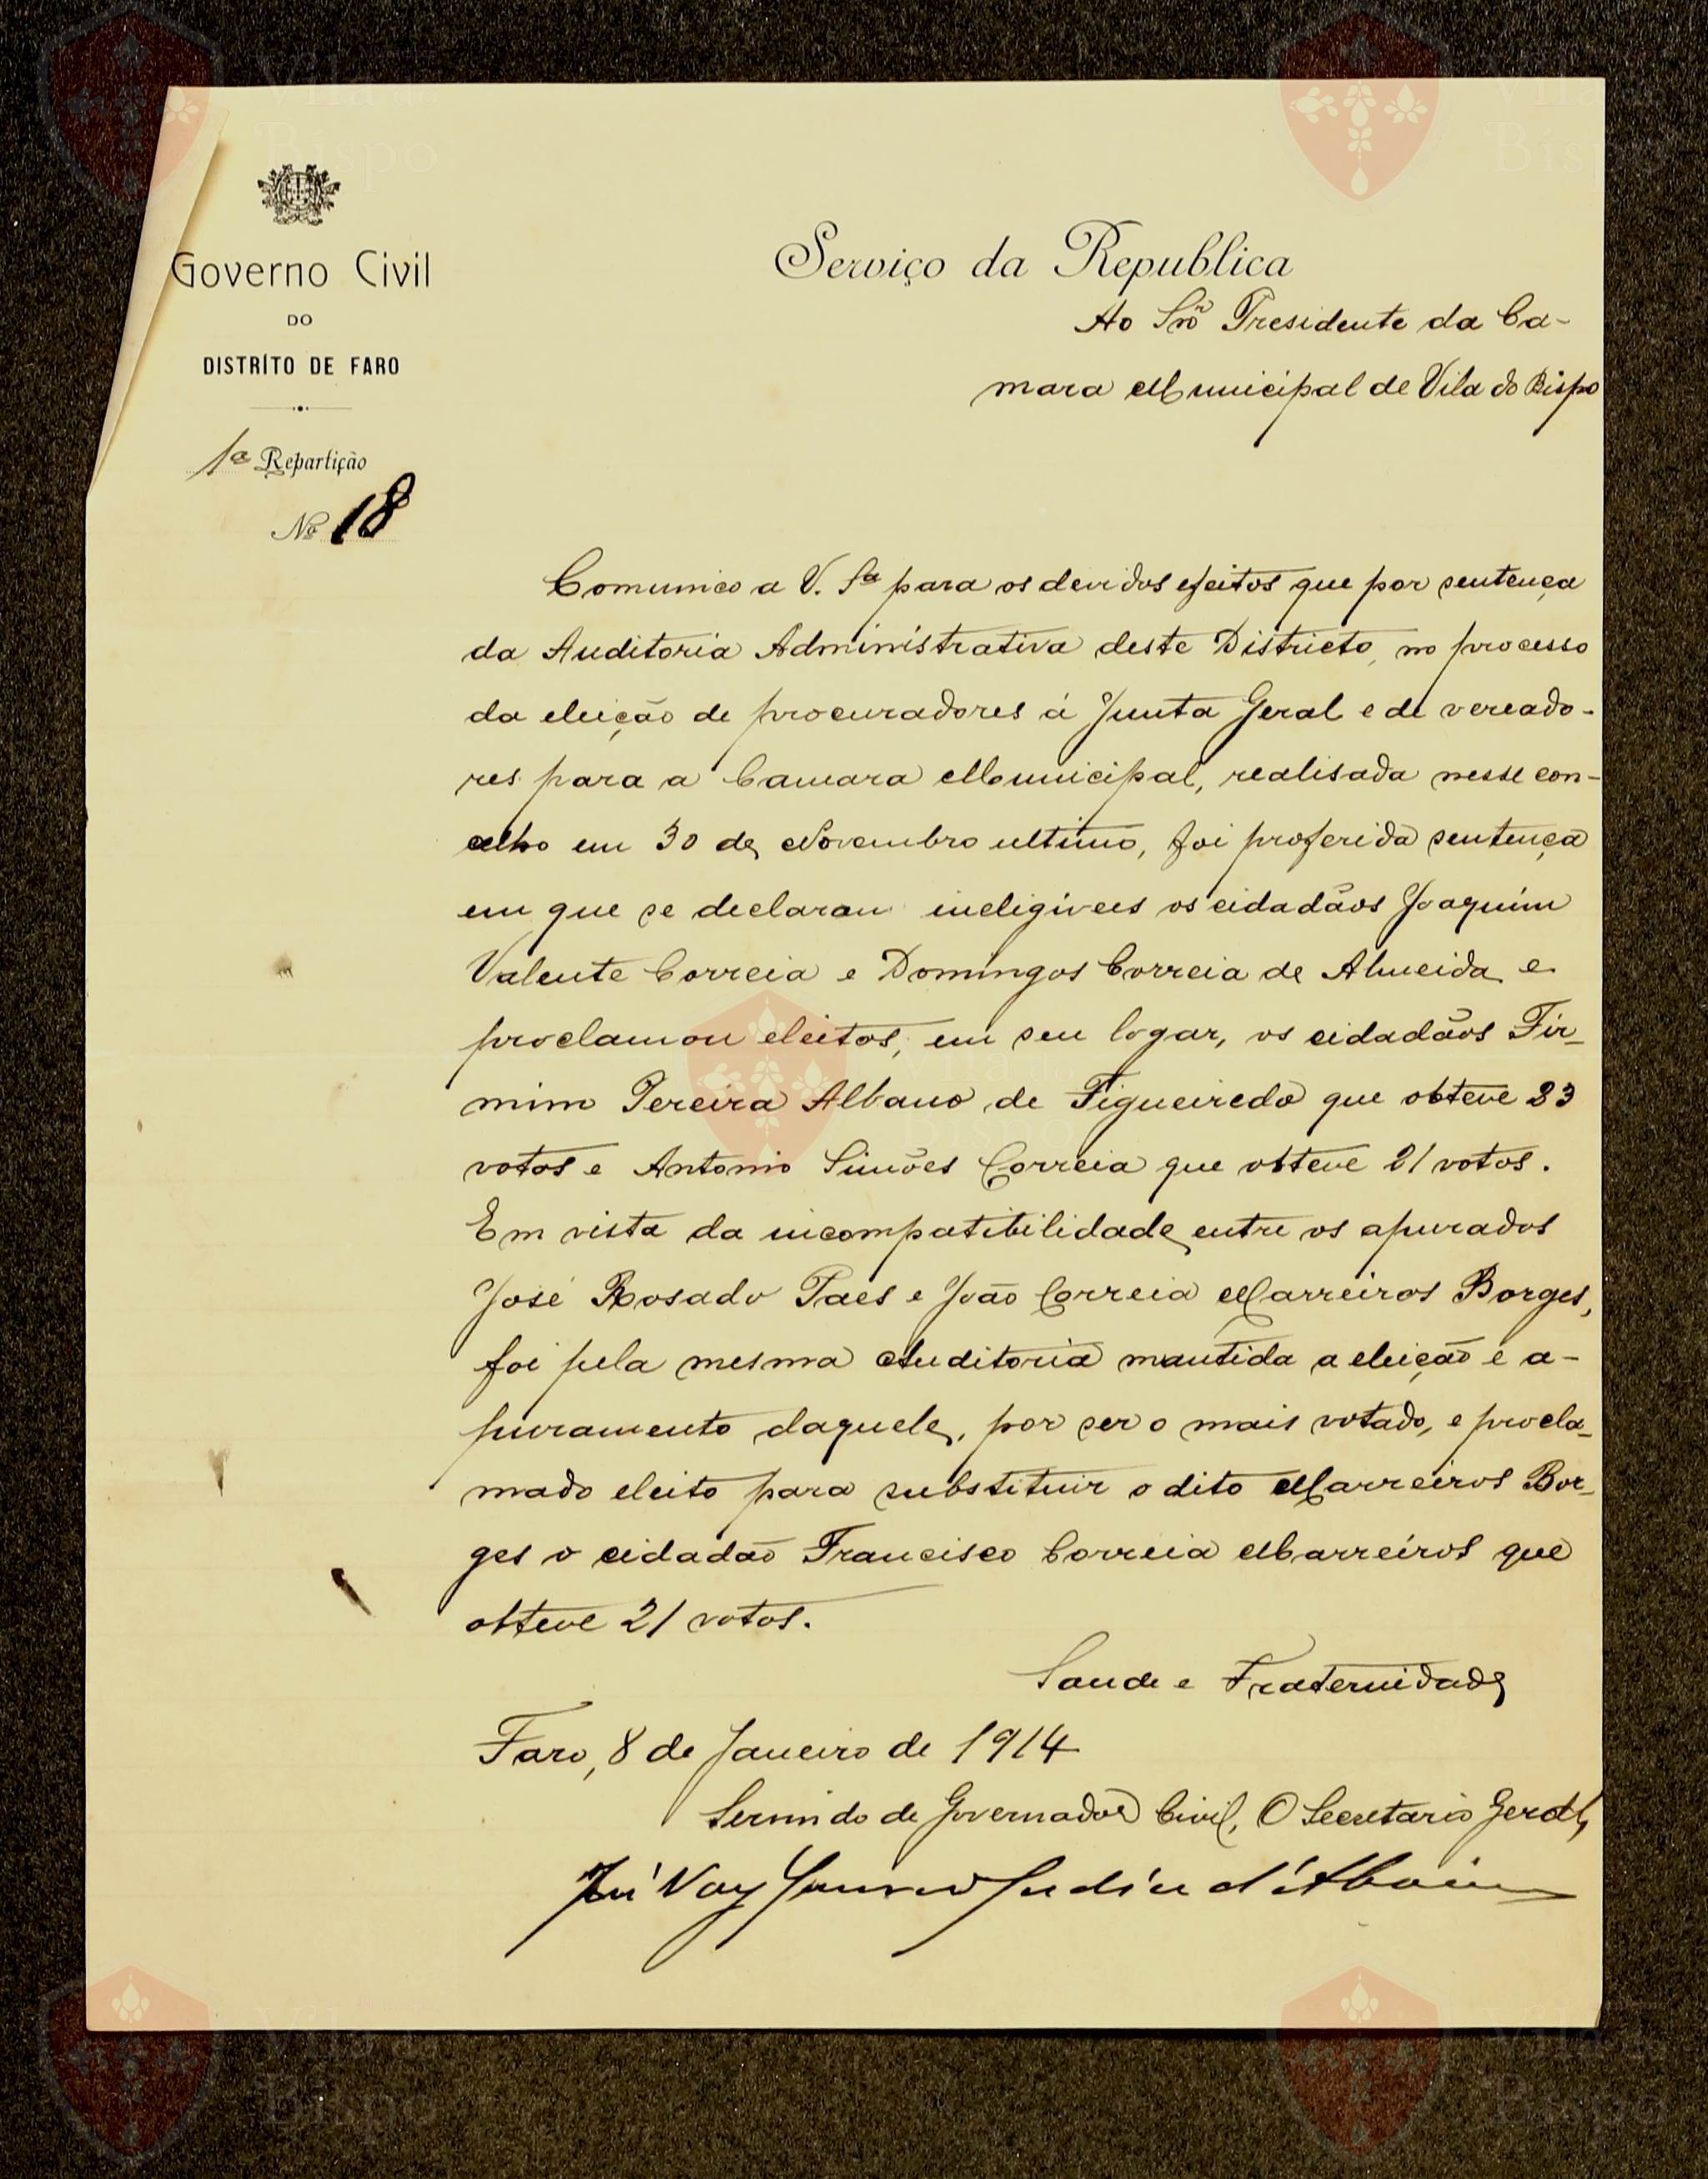 Governo Civil
DO
DISTRÍTO DE FARO
1ª Repartição
Nº 18
Serviço da Republica
Ao Snr Presidente da Ca-
mara Municipal de Vila do Bispo
Comunico a V. Sª para os devidos efeitos que por sentença
da Auditoria Administrativa deste Districto, no processo
da eleição de procuradores á Junta Geral e de vereado-
res para a Camara Municipal, realisada nesse con-
celho em 30 de Novembro ultimo, foi proferida sentença
em que se declarou inelegiveis os cidadãos Joaquim
Valente Correia e Domingos Correia de Almeida e
proclamou eleitos, em seu logar, os cidadãos Fir-
mim Pereira Albano de Figueiredo que obteve 23
votos e Antonio Simões Correia que obteve 21 votos.
Em vista da incompatibilidade entre os apurados
José Rosado Paes e João Correia Marreiros Borges,
foi pela mesma Auditoria mantida a eleição e a-
puramento daquele, por ser o mais votado, e procla-
mado eleito para substituir o dito Marreiros Bor-
ges o cidadão Francisco Correia Marreiros que
obteve 21 votos.
Saude e Fraternidade
Faro, 8 de Janeiro de 1914
Servindo de Governador Civil, O Secretario Geral,
Vila do
Bispo